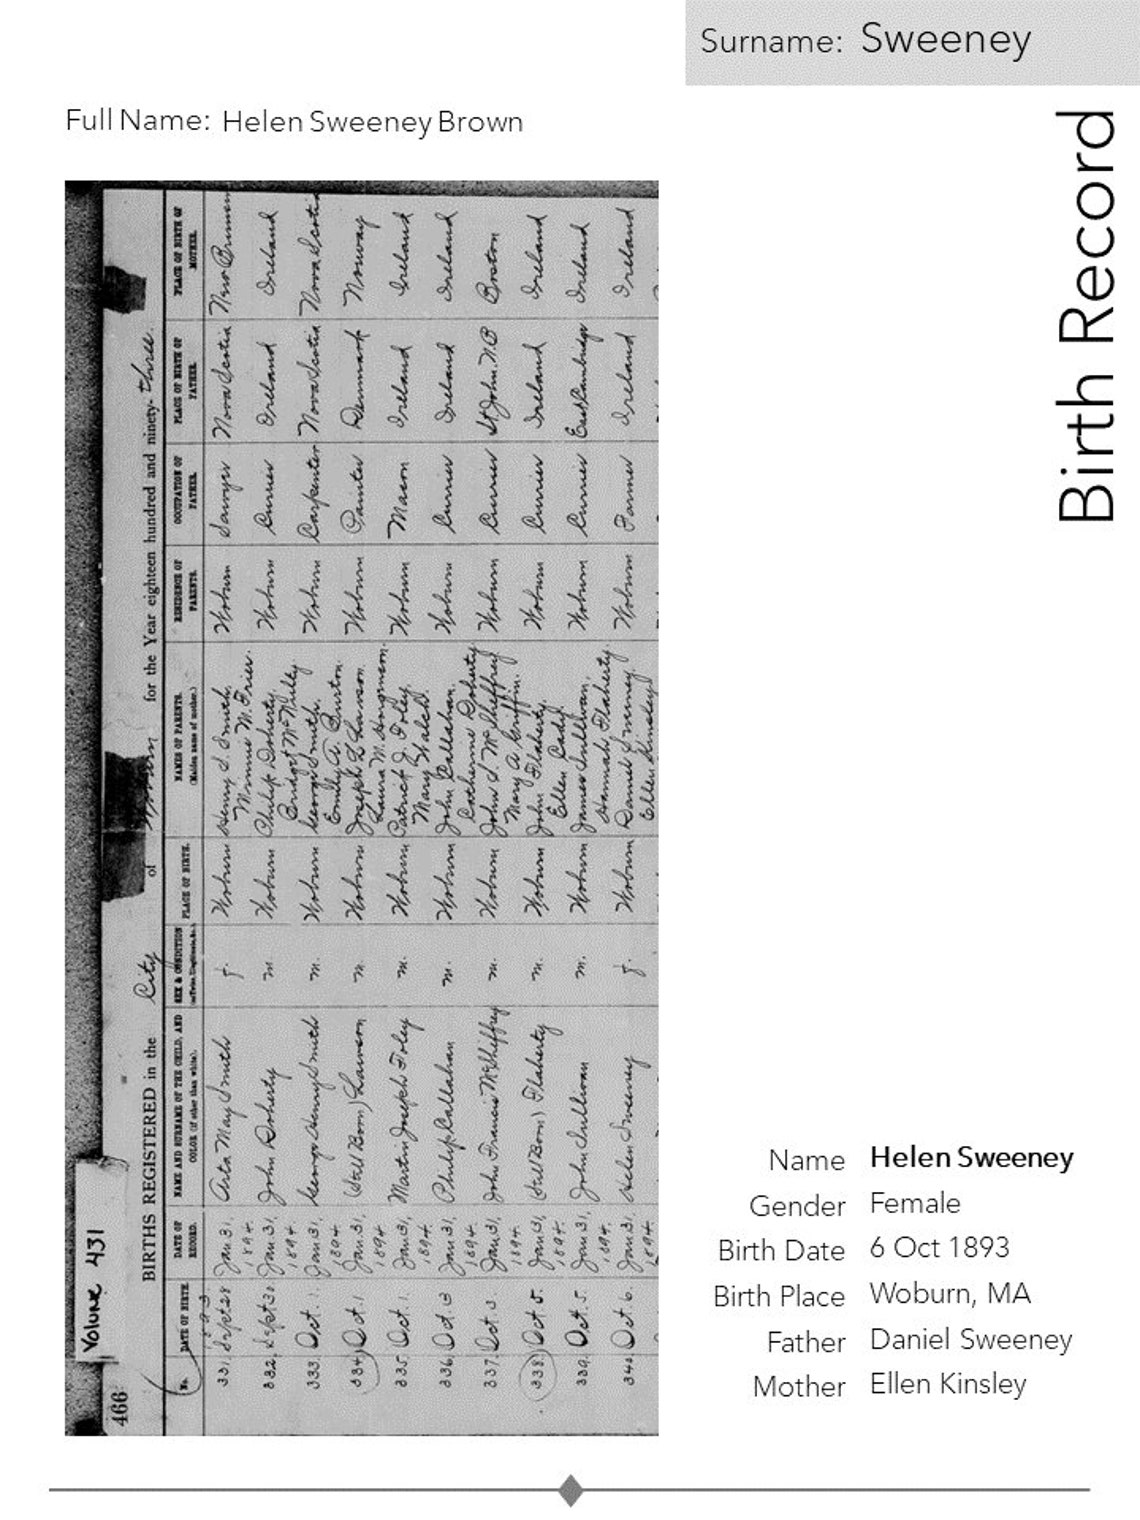 Surname: Sweeney
Full Name: Helen Sweeney Brown
Birth Record
466
Volume 431
BIRTHS REGISTERED in the City of Woburn for the Year eighteen hundred and ninety-three.
No. DATE OF BIRTH. DATE OF RECORD. NAME AND SURNAME OF THE CHILD, AND COLOR (if other than white). SEX & CONDITION (as Twins, Illegitimate, &c.) PLACE OF BIRTH. NAMES OF PARENTS. (Maiden name of mother.) RESIDENCE OF PARENTS. OCCUPATION OF FATHER. PLACE OF BIRTH OF FATHER. PLACE OF BIRTH OF MOTHER.
1893
331. Sept 28 Jan 31, 1894. Arta May Smith f. Woburn Henry S. Smith, Minnie M. Woburn Sawyer Nova Scotia New
332. Sept 30 Jan 31, 1894. John Doherty m. Woburn Philip Doherty, Bridget McNulty Woburn Currier Ireland Ireland
333. Oct. 1. Jan 31, 1894. George Henry Smith m. Woburn George Smith, Emily A. Burton. Woburn Carpenter Nova Scotia Nova Scotia
334. Oct 1 Jan 31, 1894 (Still Born) Lawson m. Woburn Joseph L Lawson. Laura M. Woburn Painter Denmark Norway
335. Oct. 1. Jan 31, 1894. Martin Joseph Foley m. Woburn Patrick J. Foley, Mary Walsh. Woburn Mason Ireland Ireland
336. Oct. 3 Jan 31, 1894. Philip Callahan m. Woburn John Callahan, Catherine Doherty Woburn Currier Ireland Ireland
337. Oct. 3. Jan 31, 1894. John Francis McSheffrey m. Woburn John S McSheffrey Mary A. Griffin. Woburn Currier St John. N.B Boston
338. Oct 5. Jan 31, 1894. (Still Born) Flaherty m. Woburn John Flaherty, Ellen Woburn Currier Ireland Ireland
339. Oct. 5. Jan 31, 1894. John Sullivan m. Woburn James Sullivan, Hannah Flaherty. Woburn Currier East Cambridge Ireland
340. Oct. 6. Jan 31. 1894 Helen Sweeney f. Woburn Daniel Sweeney. Ellen Kinsley Woburn Farmer Ireland Ireland
Name Helen Sweeney
Gender Female
Birth Date 6 Oct 1893
Birth Place Woburn, MA
Father Daniel Sweeney
Mother Ellen Kinsley